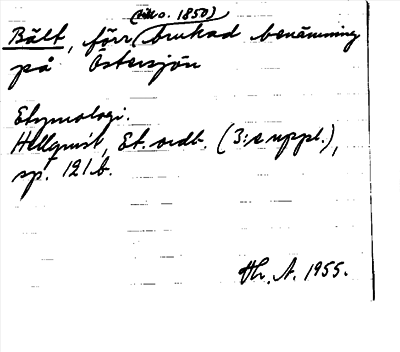 (till o. 1850)
Bält, förr brukad benämning
på Östersjön
Etymologi.
Hellquist, Et. ordb. (3:e uppl.),
sp. 121 b.
Hr. A. 1955.